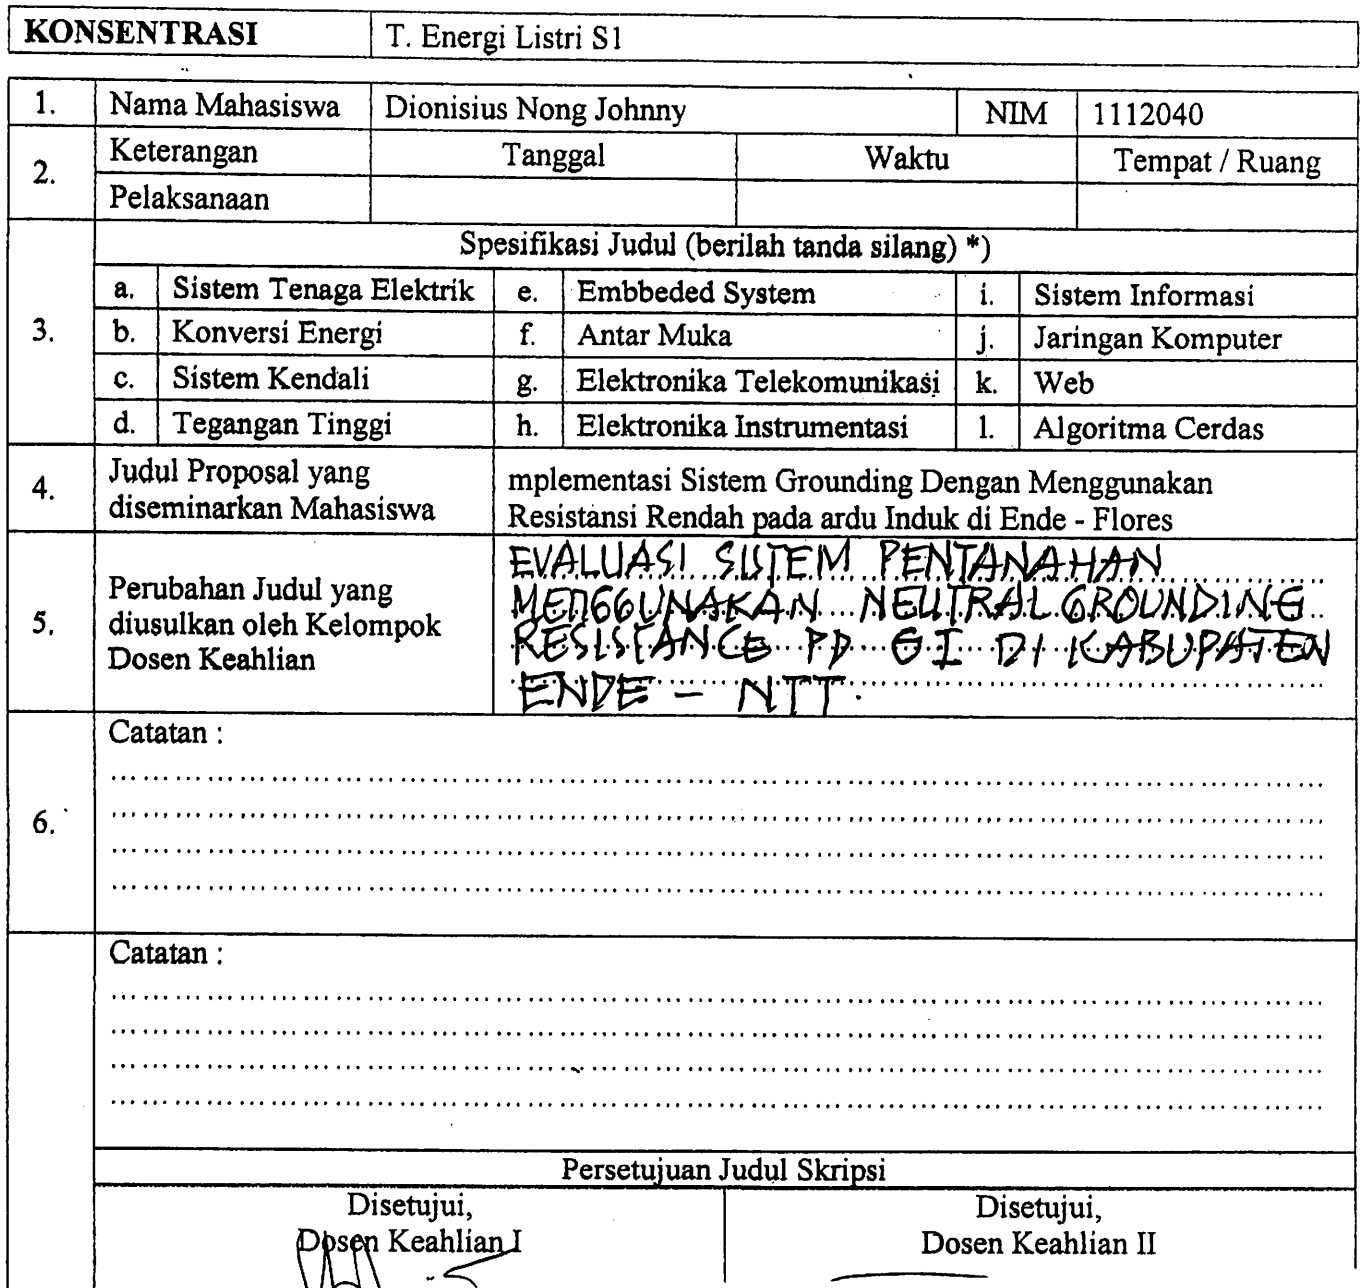 KONSENTRASI T. Energi Listri S1
1. Nama Mahasiswa Dionisius Nong Johnny NIM 1112040
2. Keterangan Tanggal Waktu Tempat / Ruang
Pelaksanaan
3. Spesifikasi Judul (berilah tanda silang) *)
a. Sistem Tenaga Elektrik e. Embbeded System i. Sistem Informasi
b. Konversi Energi f. Antar Muka j. Jaringan Komputer
c. Sistem Kendali g. Elektronika Telekomunikasi k. Web
d. Tegangan Tinggi h. Elektronika Instrumentasi l. Algoritma Cerdas
4. Judul Proposal yang
diseminarkan Mahasiswa
mplementasi Sistem Grounding Dengan Menggunakan
Resistansi Rendah pada ardu Induk di Ende - Flores
5. Perubahan Judul yang
diusulkan oleh Kelompok
Dosen Keahlian
EVALUASI SISTEM PENTANAHAN
MENGGUNAKAN NEUTRAL GROUNDING
RESISTANCE PD GI DI KABUPATEN
ENDE - NTT.
6. Catatan :
Catatan :
Persetujuan Judul Skripsi
Disetujui,
Dosen Keahlian I
Disetujui,
Dosen Keahlian II